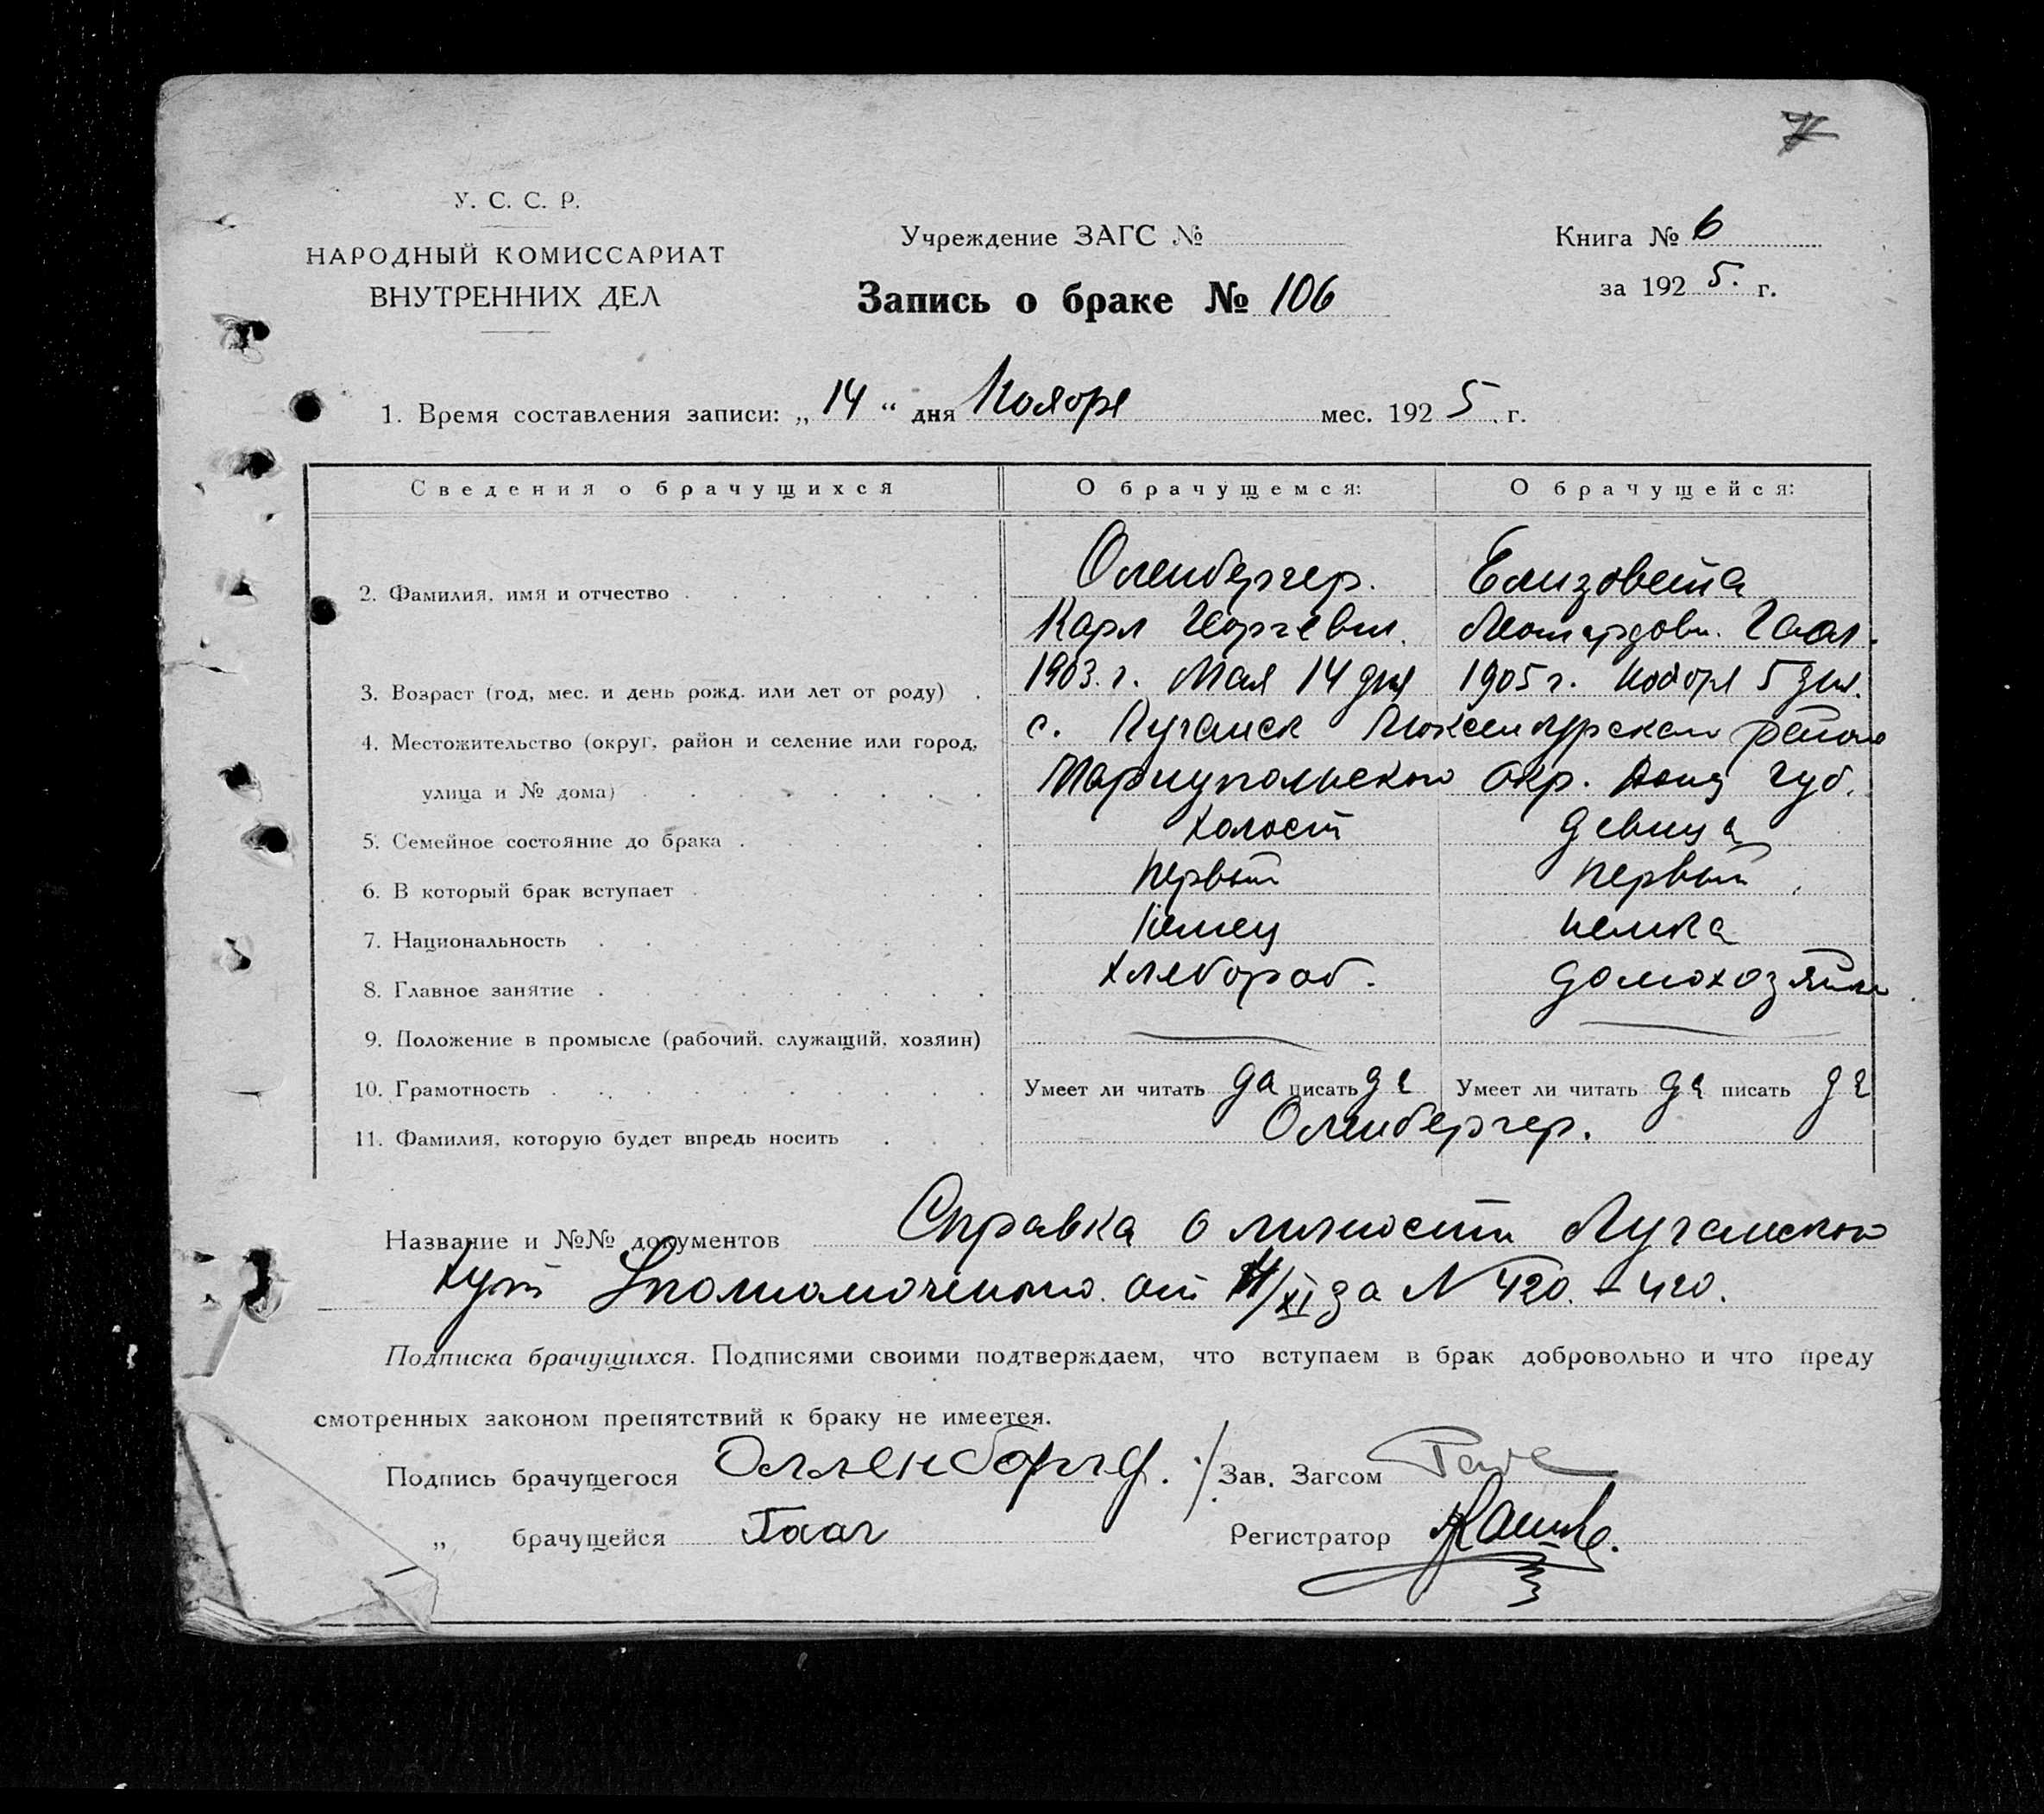 У. С. С. Р.
НАРОДНЫЙ КОМИССАРИАТ
ВНУТРЕННИХ ДЕЛ
Учреждение ЗАГС №
Запись о браке № 106
Книга № 6
за 192 5. г.
1. Время составления записи: „ 14 “ дня Ноября мес. 192 5 г.
Сведения о брачущихся О брачущемся: О брачущейся:
2. Фамилия, имя и отчество Оленбергер. Елизовета
Карл Георгевич. Леонардовн.
3. Возраст (год, мес. и день рожд. или лет от роду) 1903. г. Мая 14 дня 1905 г. Ноября 5 дня.
4. Местожительство (округ, район и селение или город, с. Луганск Люксембургского района
улица и № дома) Мариупольского Окр. Донц Губ.
5. Семейное состояние до брака холост девица
6. В который брак вступает первый первый
7. Национальность немец немка
8. Главное занятие хлебороб. домохозяйка
9. Положение в промысле (рабочий, служащий, хозяин)
10. Грамотность Умеет ли читать да писать да Умеет ли читать да писать да
11. Фамилия, которую будет впредь носить Оленбергер.
Название и №№ документов Справка о личности Луганского
Хут Уполномоченого от /XI за N 420. - 420.
Подписка брачущихся. Подписями своими подтверждаем, что вступаем в брак добровольно и что преду
смотренных законом препятствий к браку не имеется.
Подпись брачущегося Олленборгер. Зав. Загсом
„ брачущейся Гааг Регистратор